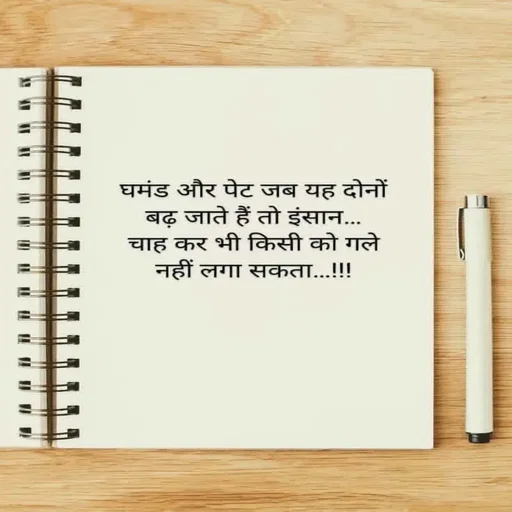 घमंड और पेट जब यह दोनों
बढ़ जाते हैं तो इंसान...
चाह कर भी किसी को गले
नहीं लगा सकता...!!!